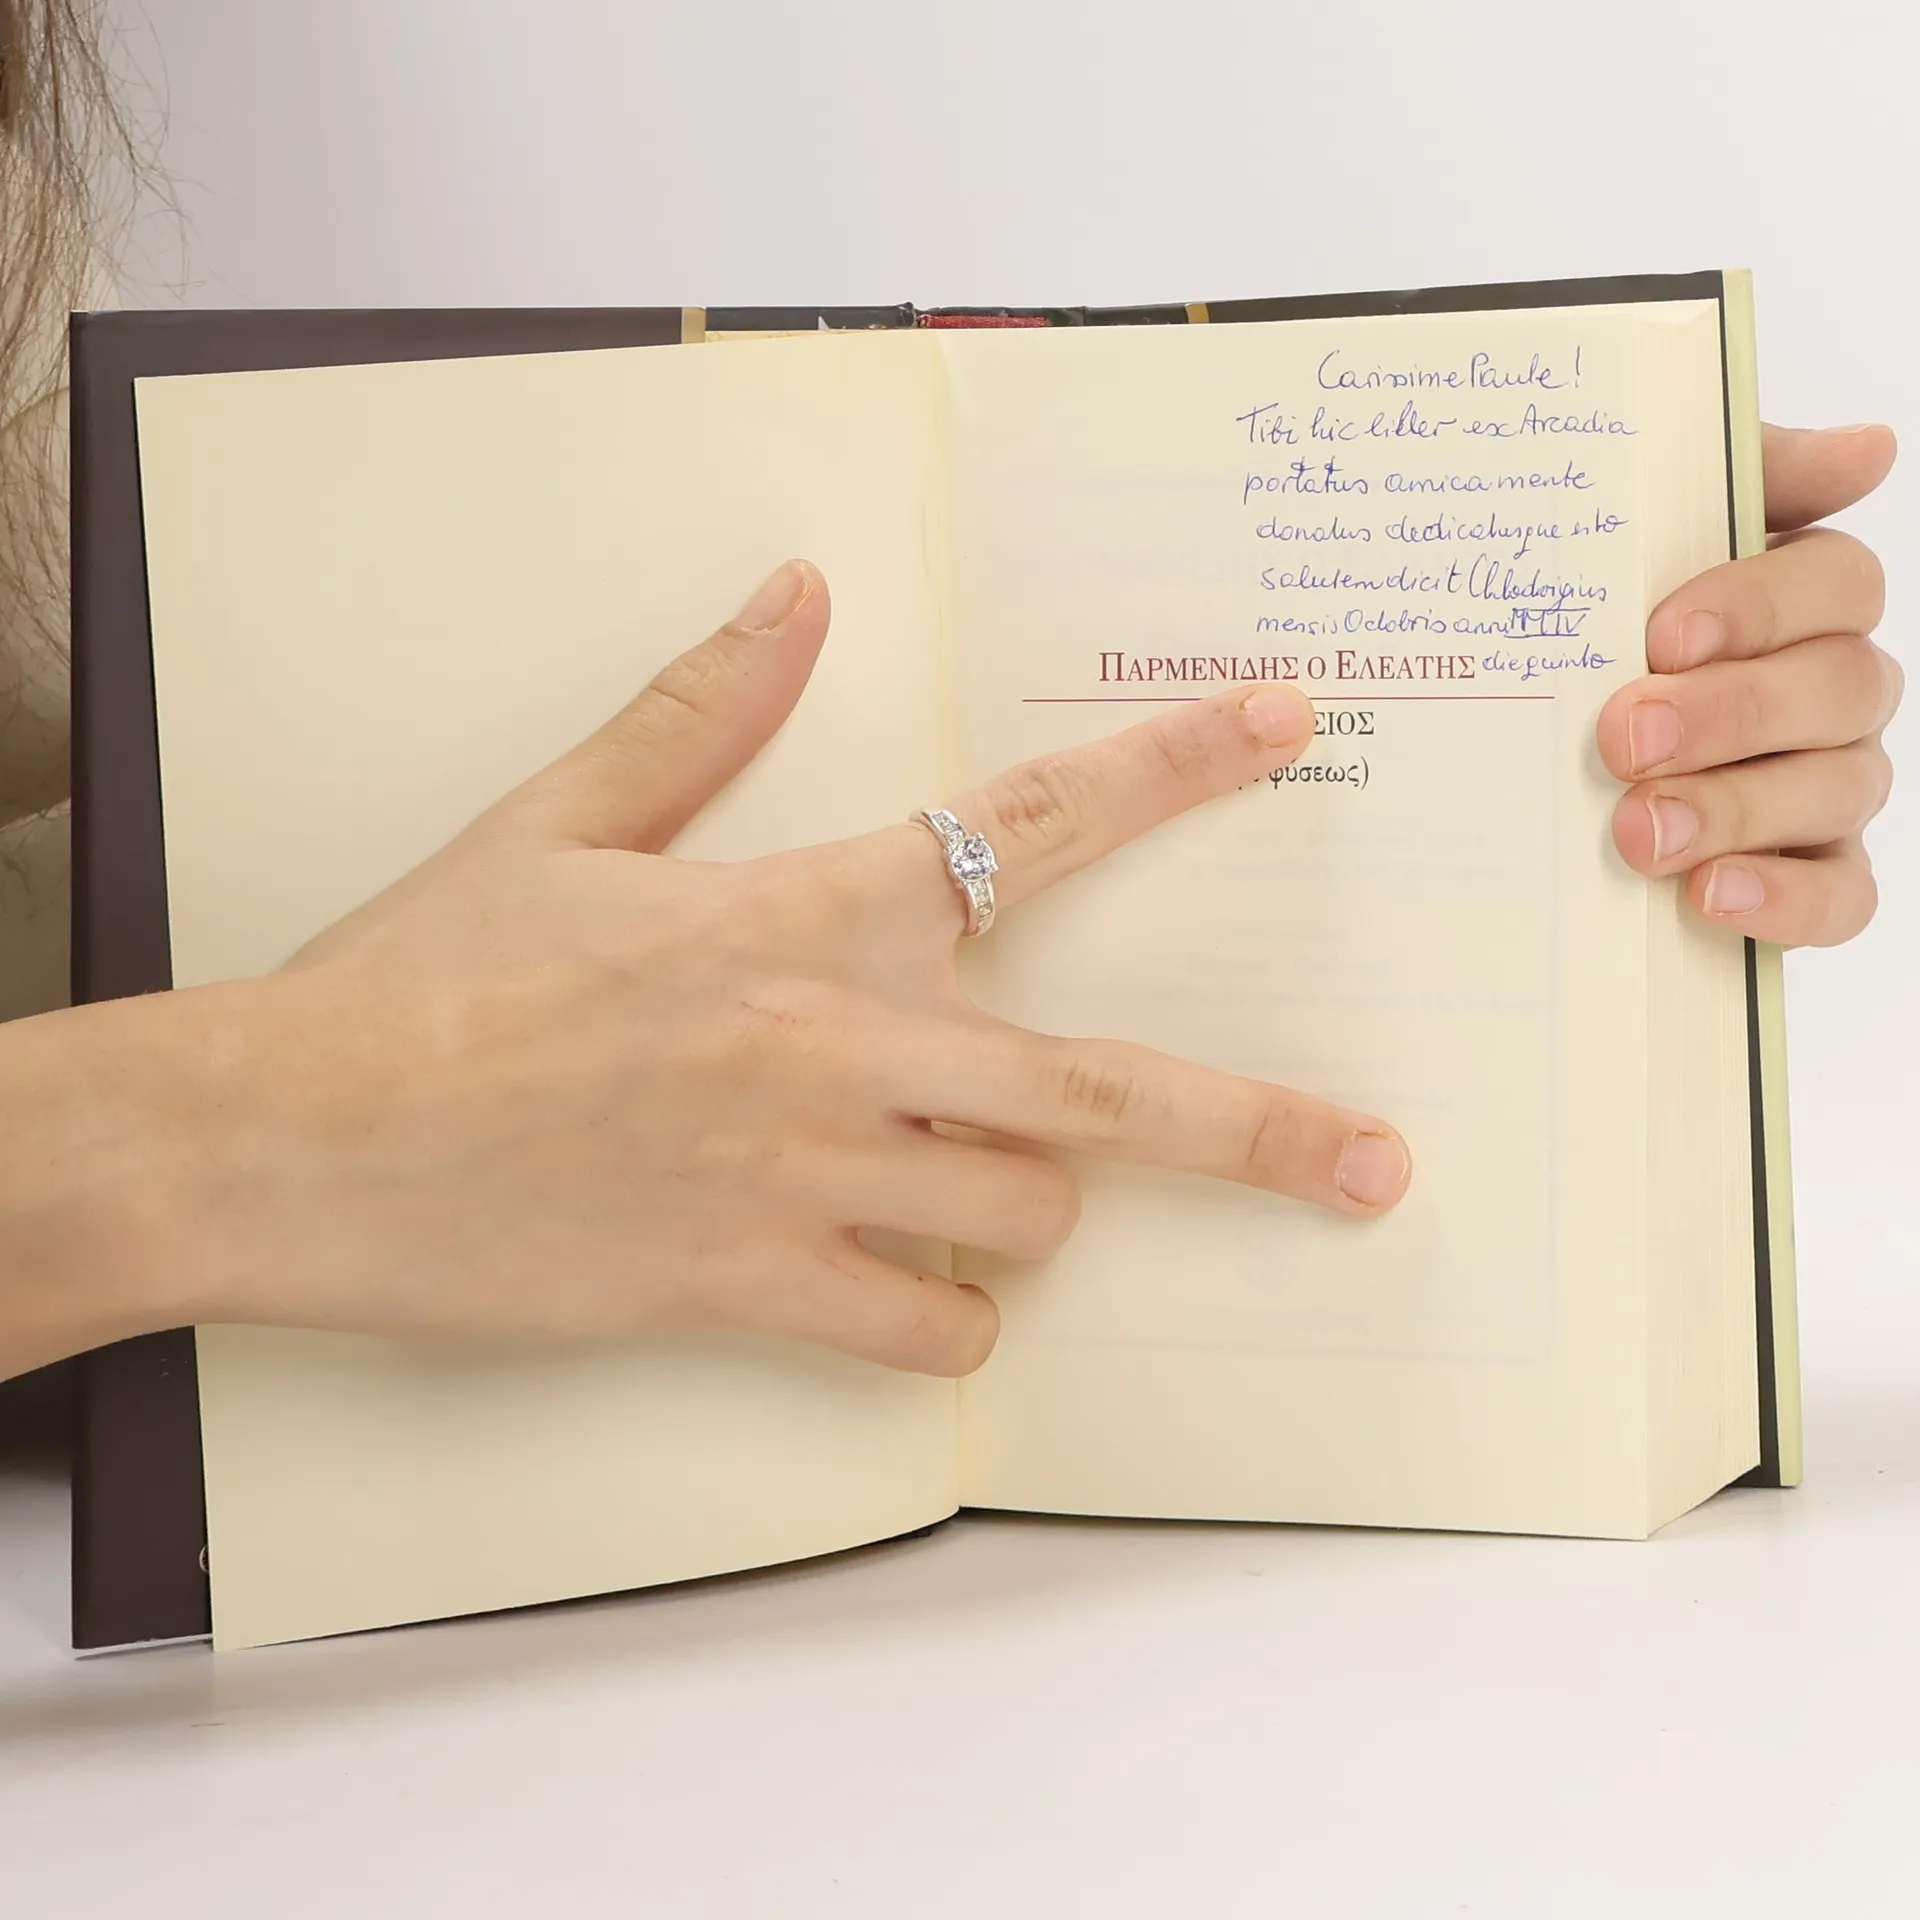 Carissime Paule!
Tibi hic liber ex Arcadia
portatus amica mente
donatus dedicatusque esto
salutem dicit Chlodovigius
mensis Octobris anni MMIV
ΠΑΡΜΕΝΙΔΗΣ Ο ΕΛΕΑΤΗΣ die quinto
φύσεως)